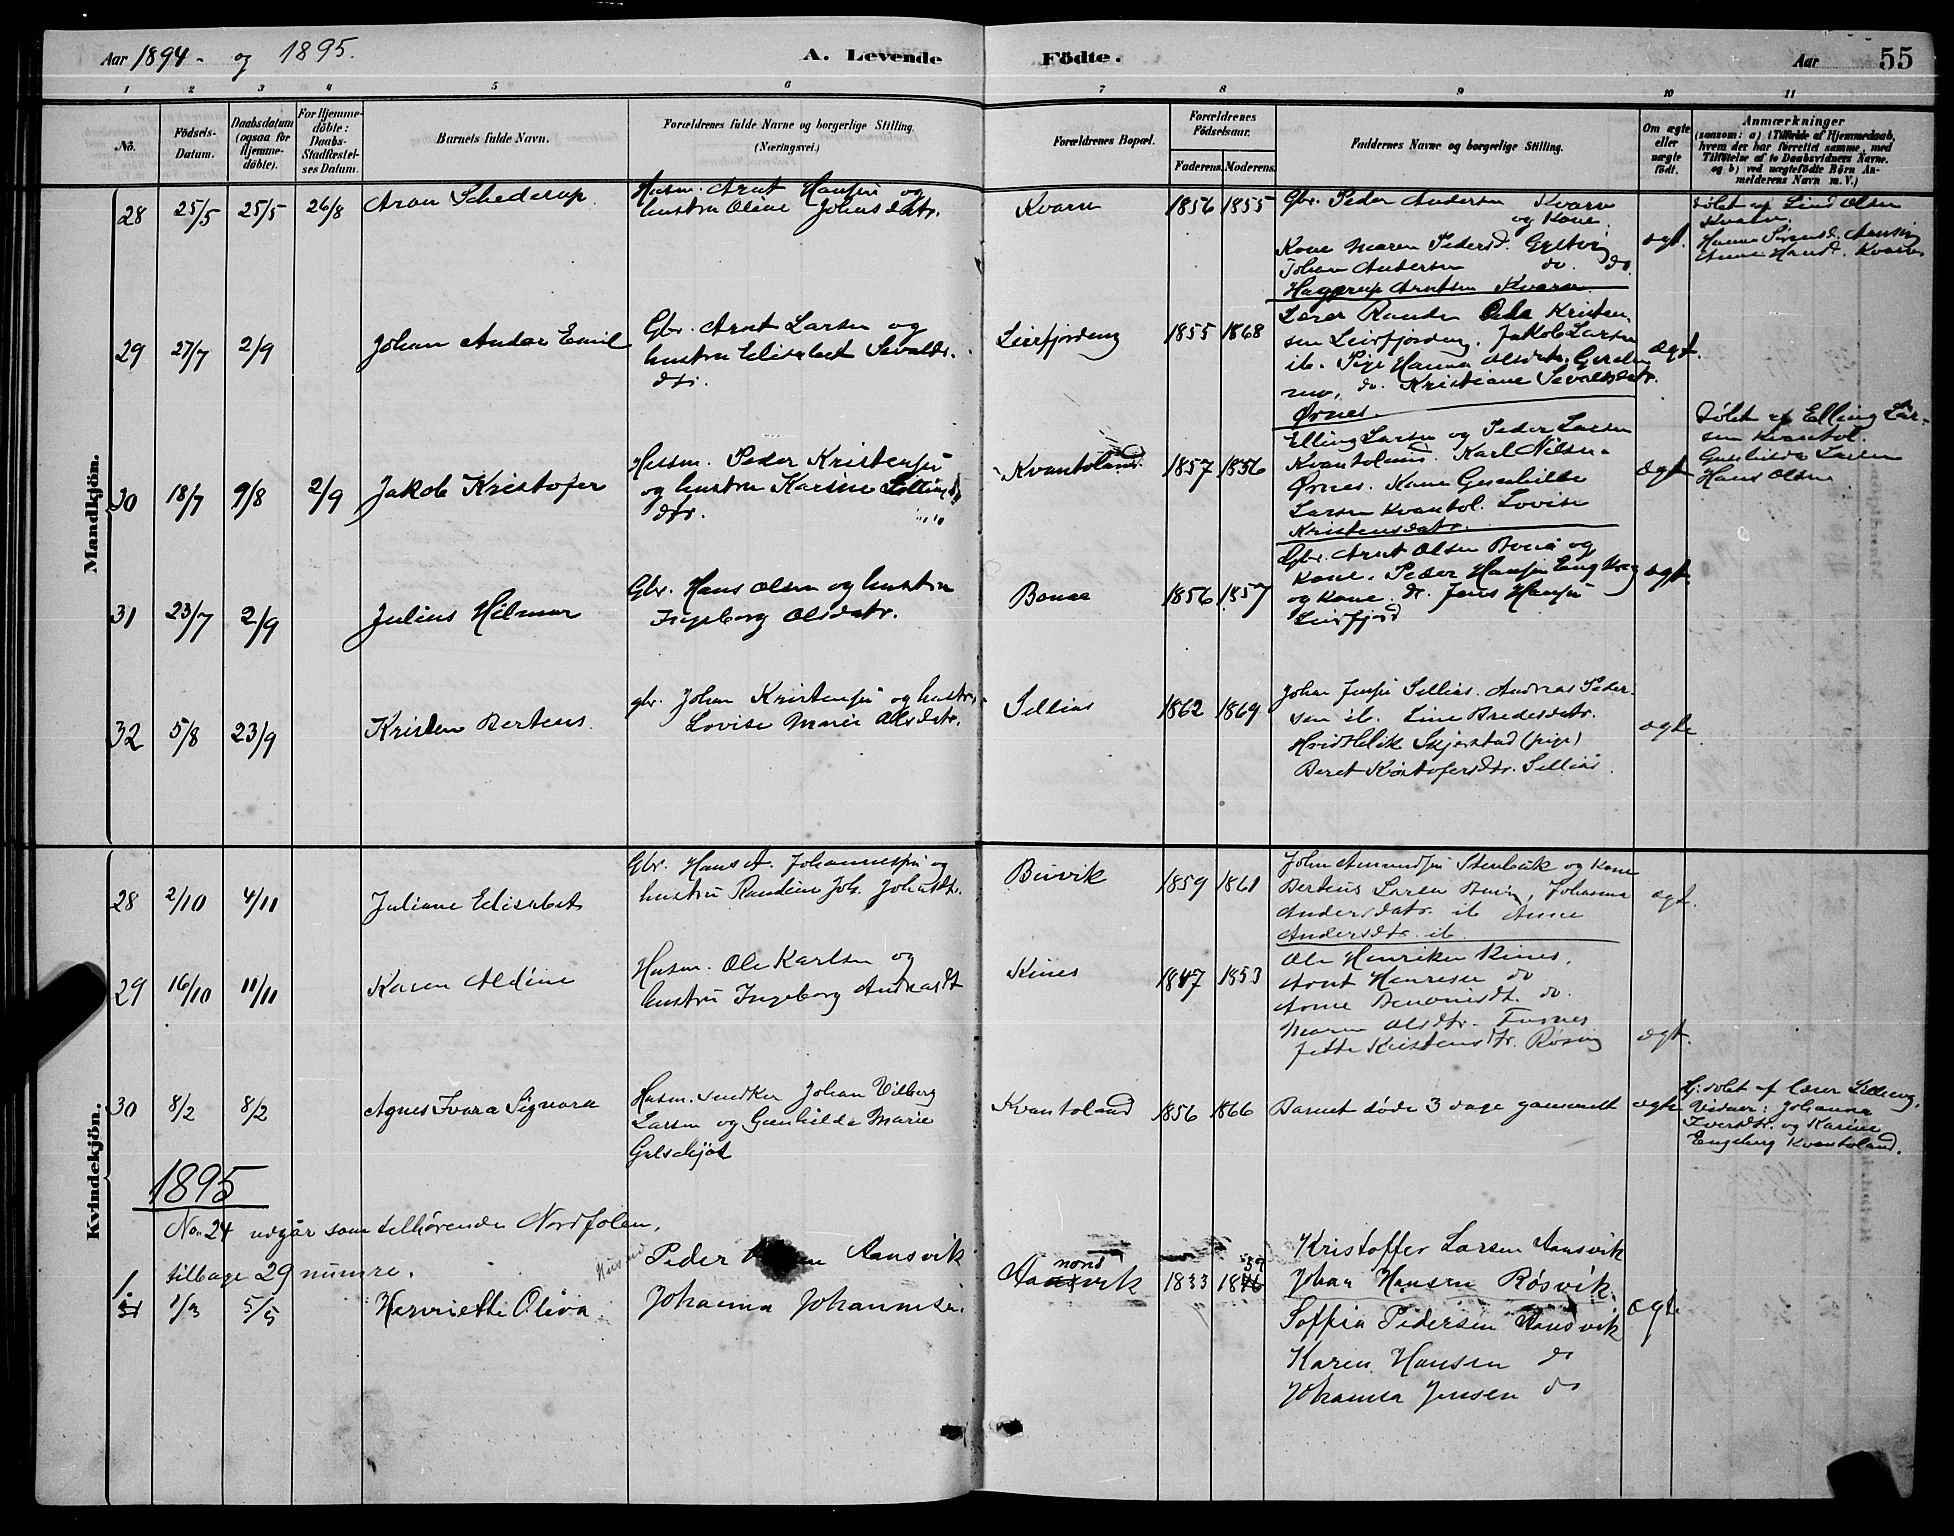 Aar 1894 - og 1895.
A. Levende Födte.
Aar
55
1 2 3 4 5 6 7 8 9 10 11
No.
Födsels-
Datum.
Daabsdatum
(ogsaa for
Hjemme-
döbte).
For Hjemme-
döbte:
Daabs-
Stadfæstel-
ses Datum.
Barnets fulde Navn.
Forældrenes fulde Navne og borgerlige Stilling.
(Næringsvei.)
Forældrenes Bopæl.
Forældrenes
Födselsaar.
Faderens. Moderens.
Faddernes Navne og borgerlige Stilling.
Om ægte
eller
uægte
födt.
Anmærkninger
(saasom: a) i Tilfælde af Hjemmedaab,
hvem der har forrettet samme, med
Tilföielse af to Daabsvidners Navne.
og b) ved uægtefödte Börn An-
melderens Navn m. V.)
Mandkjön.
28 25/5 25/5 26/8
Aron Schederup
Husm. Arnt Hansen og
hustru Oline Johnsdatr.
Kvarv
1856 1855
Gbr. Peder Andersen Kvarv
og Kone.
Kone Maren Pedersd.
Johan Andersen do. do.
Hagerup Arntsen Kvarv.
ægt.
Døbt af Olsen
Kvarv.
29 27/7 2/9
Johan Andor Emil
Gbr. Arnt Larsen og
hustru Elisabet Sevalds-
dtr.
Leirfjorden
1855 1868
Lærer Randen Ole Kristen-
sen Leirfjorden. Jakob Larsen
ib. Pige Hanna Olsdtr.
do. Kristiane Sevaldsdatr.
Ørnes.
ægt.
30 18/7 9/8 2/9
Jakob Kristofer
Husm. Peder Kristensen
og hustru Karine Ellings
dtr.
Kvantoland
1857 1856
Elling Larsen og Peder Larsen
Kvantoland. Karl Nilsen
Ørnes. Kone Gunhilde
Larsen Kvantol. Lovise
Kristensdatr.
ægt
Døbt af Elling Lar-
sen Kvantol.
Gunhilde Larsen
Hans Olsen
31 23/7 2/9
Julius Hilmar
Gbr. Hans Olsen og hustru
Ingeborg Olsdatr.
Bonaa
1856 1857
Gbr. Arnt Olsen og
Kone. Peder Hansen
og Kone. do. Jens Hansen
Leirfjord
ægt
32 5/8 23/9
Kristen Berteus
gbr. Johan Kristensen og hustru
Lovise Marie Olsdatr.
Sellias
1862 1869
Johan Jensen Sellias. Andreas Peder-
sen ib. Line Bredesdatr.
Skjerstad (pige)
Beret Kristofersdtr. Sellias.
ægte
Kvindekjön.
28 2/10 4/11
Juliane Elisabet
Gbr. Hans A. Johannessen og
hustru Randine Joh. Johansdtr.
Buvik
1859 1861
John Amundsen Stenbak og Kone
Berteus Larsen Buvik, Johanna
Andersdatr. ib Anne
Andersdtr. ib.
ægt.
29 16/10 11/11
Karen Aldine
Husm. Ole Karlsen og
hustru Ingeborg Andreasdt
Kines
1847 1853
Ole Henriksen Kines.
Arnt Henriksen do
Anne Benonisdt. do.
Maren Olsdtr. Furnes
Jette Kristensdtr. Røsvig
ægt.
30 8/2 8/2
Agnes Ivara Signora
Husm. snedker Johan Vilberg
Larsen og Gunhilda Marie
Kvantoland
1856 1866
Barnet døde 3 dage gammelt
ægte
Hj. døbt af lærer
Vidner: Johanna
Iversdtr. og Karine
Engeberg Kvantoland.
1895
No. 24 udgår som tilhørende Nordfolen,
tilbage 29 numre.
1. 1/3 5/5
Henriette Oliva
Peder Aansvik
Johanna Johannesen.
nord
Aansvik
1833 18 59
Kristoffer Larsen Aansvik
Johan Hansen Røsvik.
Soffia Pedersen Aansvik
Karen Hansen do
Johanna Jensen do
ægte